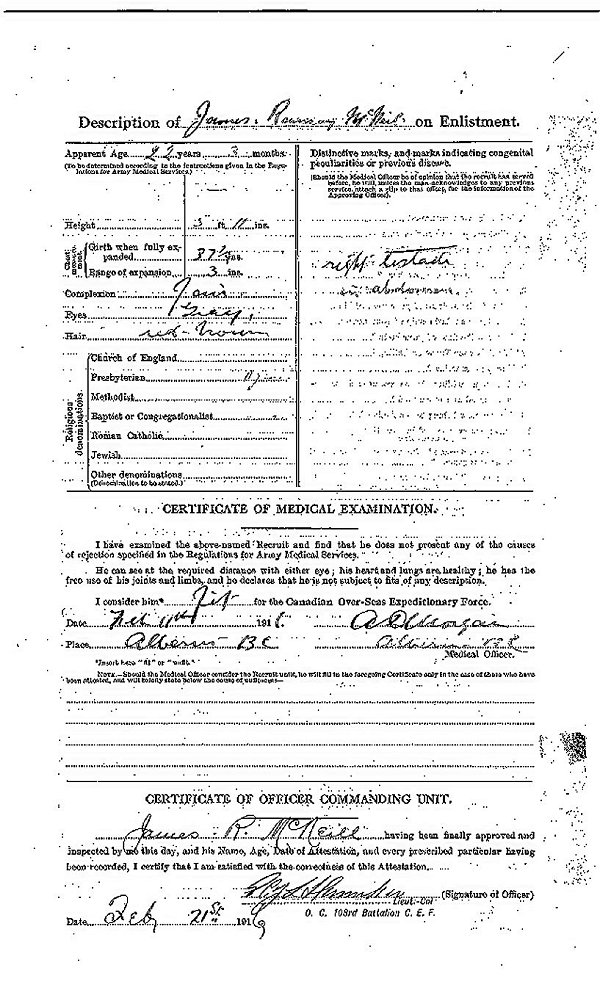 Description of James. Ramsay McNeil on Enlistment.
Apparent Age 22 years 3 months.
(To be determined according to the instructions given in the Regulations for Army Medical Services.)
Height 5 ft. 11 ins.
Chest measurement
Girth when fully expanded 37½ ins.
Range of expansion 3 ins.
Complexion Fair
Eyes Gray,
Hair red-brown
Religious denominations.
Church of England
Presbyterian
Methodist
Baptist or Congregationalist
Roman Catholic
Jewish
Other denominations
(Denomination to be stated.)
Distinctive marks, and marks indicating congenital
peculiarities or previous disease.
(Should the Medical Officer be of opinion that the recruit has served
before, he will, unless the man acknowledges to any previous
service, attach a slip to that effect, for the information of the
Approving Officer).
right testacle
in abdomen.
CERTIFICATE OF MEDICAL EXAMINATION.
I have examined the above-named Recruit and find that he does not present any of the causes
of rejection specified in the Regulations for Army Medical Services.
He can see at the required distance with either eye; his heart and lungs are healthy; he has the
free use of his joints and limbs, and he declares that he is not subject to fits of any description.
I consider him* Fit for the Canadian Over-Seas Expeditionary Force.
Date Feb 191
Place Alberni BC
A D Morgan
Alberni B.C.
Medical Officer.
*Insert here "fit" or "unfit."
NOTE.—Should the Medical Officer consider the Recruit unfit, he will fill in the foregoing Certificate only in the case of those who have
been attested, and will briefly state below the cause of unfitness:—
CERTIFICATE OF OFFICER COMMANDING UNIT.
James R. McNeill having been finally approved and
inspected by me this day, and his Name, Age, Date of Attestation, and every prescribed particular having
been recorded, I certify that I am satisfied with the correctness of this Attestation.
Lieut-Col (Signature of Officer)
O. C. 103rd Battalion C. E. F.
Date Feb 21st 191